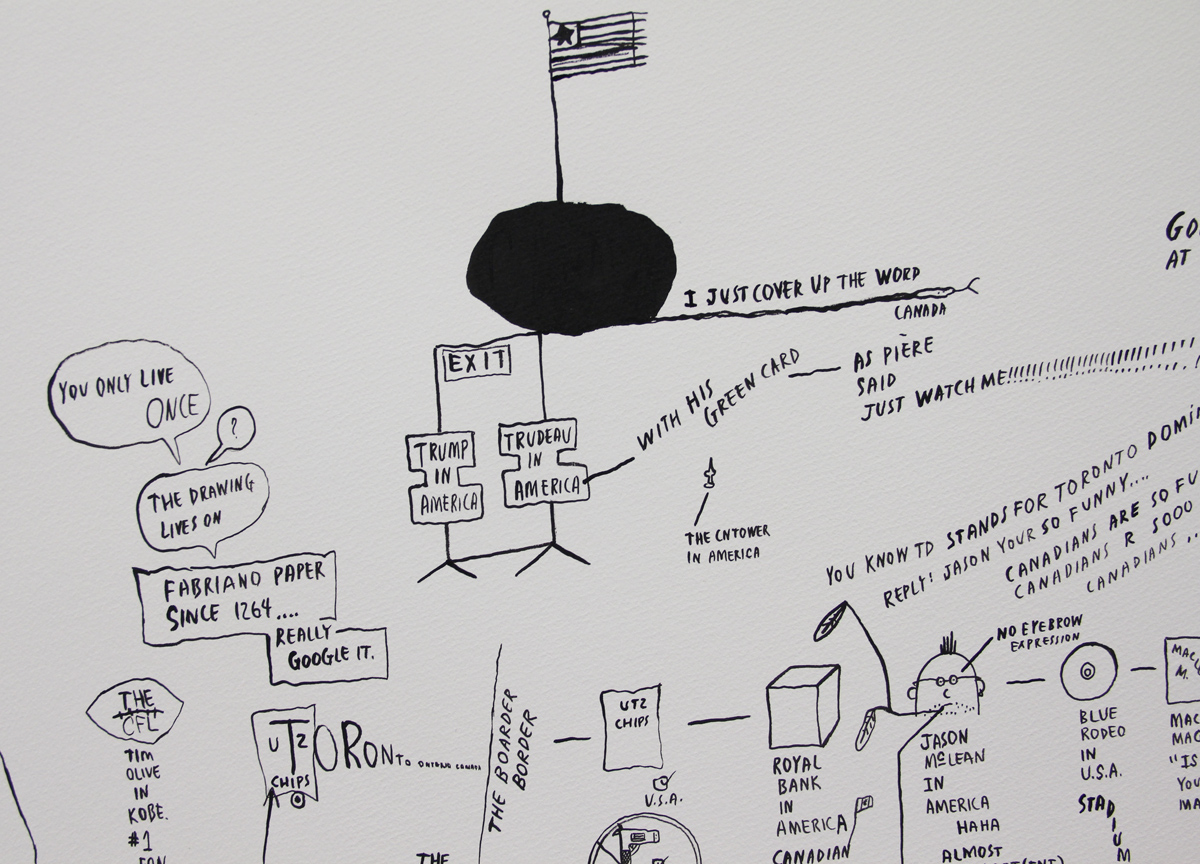 I JUST COVER UP THE WORD
CANADA
EXIT
TRUMP
IN
AMERICA
TRUDEAU
IN
AMERICA
WITH HIS
GREEN CARD
AS PIÈRE
SAID
JUST WATCH ME!!!!!!!!!!!!!!!!!!!!!!!!!!!!
THE CN TOWER
IN AMERICA
GO
AT
YOU ONLY LIVE
ONCE
?
THE DRAWING
LIVES ON
FABRIANO PAPER
SINCE 1264....
REALLY
GOOGLE IT.
YOU KNOW TD STANDS FOR TORONTO DOMI
REPLY! JASON YOUR SO FUNNY....
CANADIANS ARE SO FU
CANADIANS R SOOO
CANADIANS ..
NO EYEBROW
EXPRESSION
THE
CFL
TIM
OLIVE
IN
KOBE.
#1
FAN
UTZ
CHIPS
TORONTO ONTARIO CANADA
THE BOARDER
BORDER
THE
UTZ
CHIPS
U.S.A.
ROYAL
BANK
IN
AMERICA
CANADIAN
JASON
McLEAN
IN
AMERICA
HAHA
ALMOST
BLUE
RODEO
IN
U.S.A.
STADIUM
MAC
M.
MAC
MAC
"IS
YOU
MA